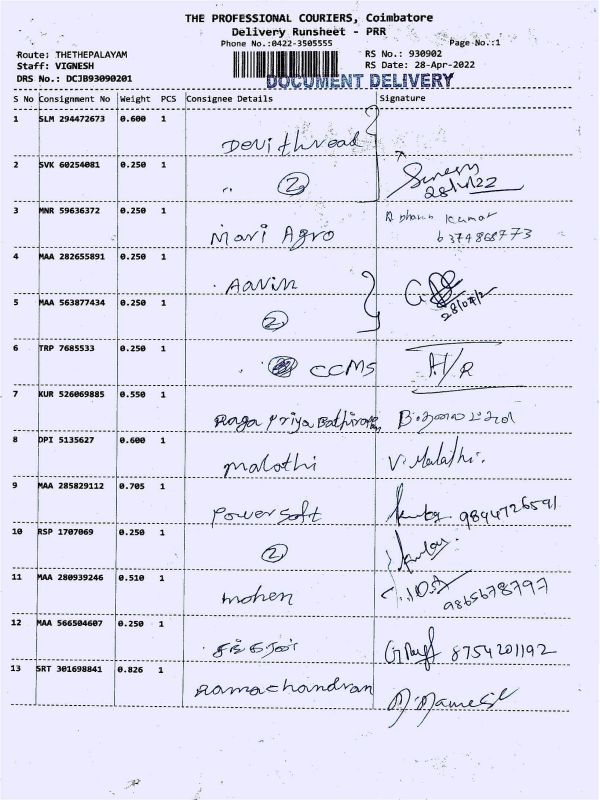 THE PROFESSIONAL COURIERS, Coimbatore
Delivery Runsheet - PRR
Phone No.:0422-3505555
Page No.:1
Route: THETHEPALAYAM
RS No.: 930902
Staff: VIGNESH
RS Date: 28-Apr-2022
DRS No.: DCJB93090201
DOCUMENT DELIVERY
S No Consignment No Weight PCS Consignee Details Signature
1 SLM 294472673 0.600 1
Devi thread
2 SVK 60254081 0.250 1
.. 2
3 MNR 59636372 0.250 1
Mari Agro kumar
4 MAA 282655891 0.250 1
Aavin
5 MAA 563877434 0.250 1
2
6 TRP 7685533 0.250 1
CCMS
7 KUR 526069885 0.550 1
Raga Priya
8 DPI 5135627 0.600 1
malothi V. Malathi.
9 MAA 285829112 0.705 1
Power Soft 9894726591
10 RSP 1707069 0.250 1
2
11 MAA 280939246 0.510 1
mohen 9865678797
12 MAA 566504607 0.250 1
8754201192
13 SRT 301698841 0.826 1
Ramachandran